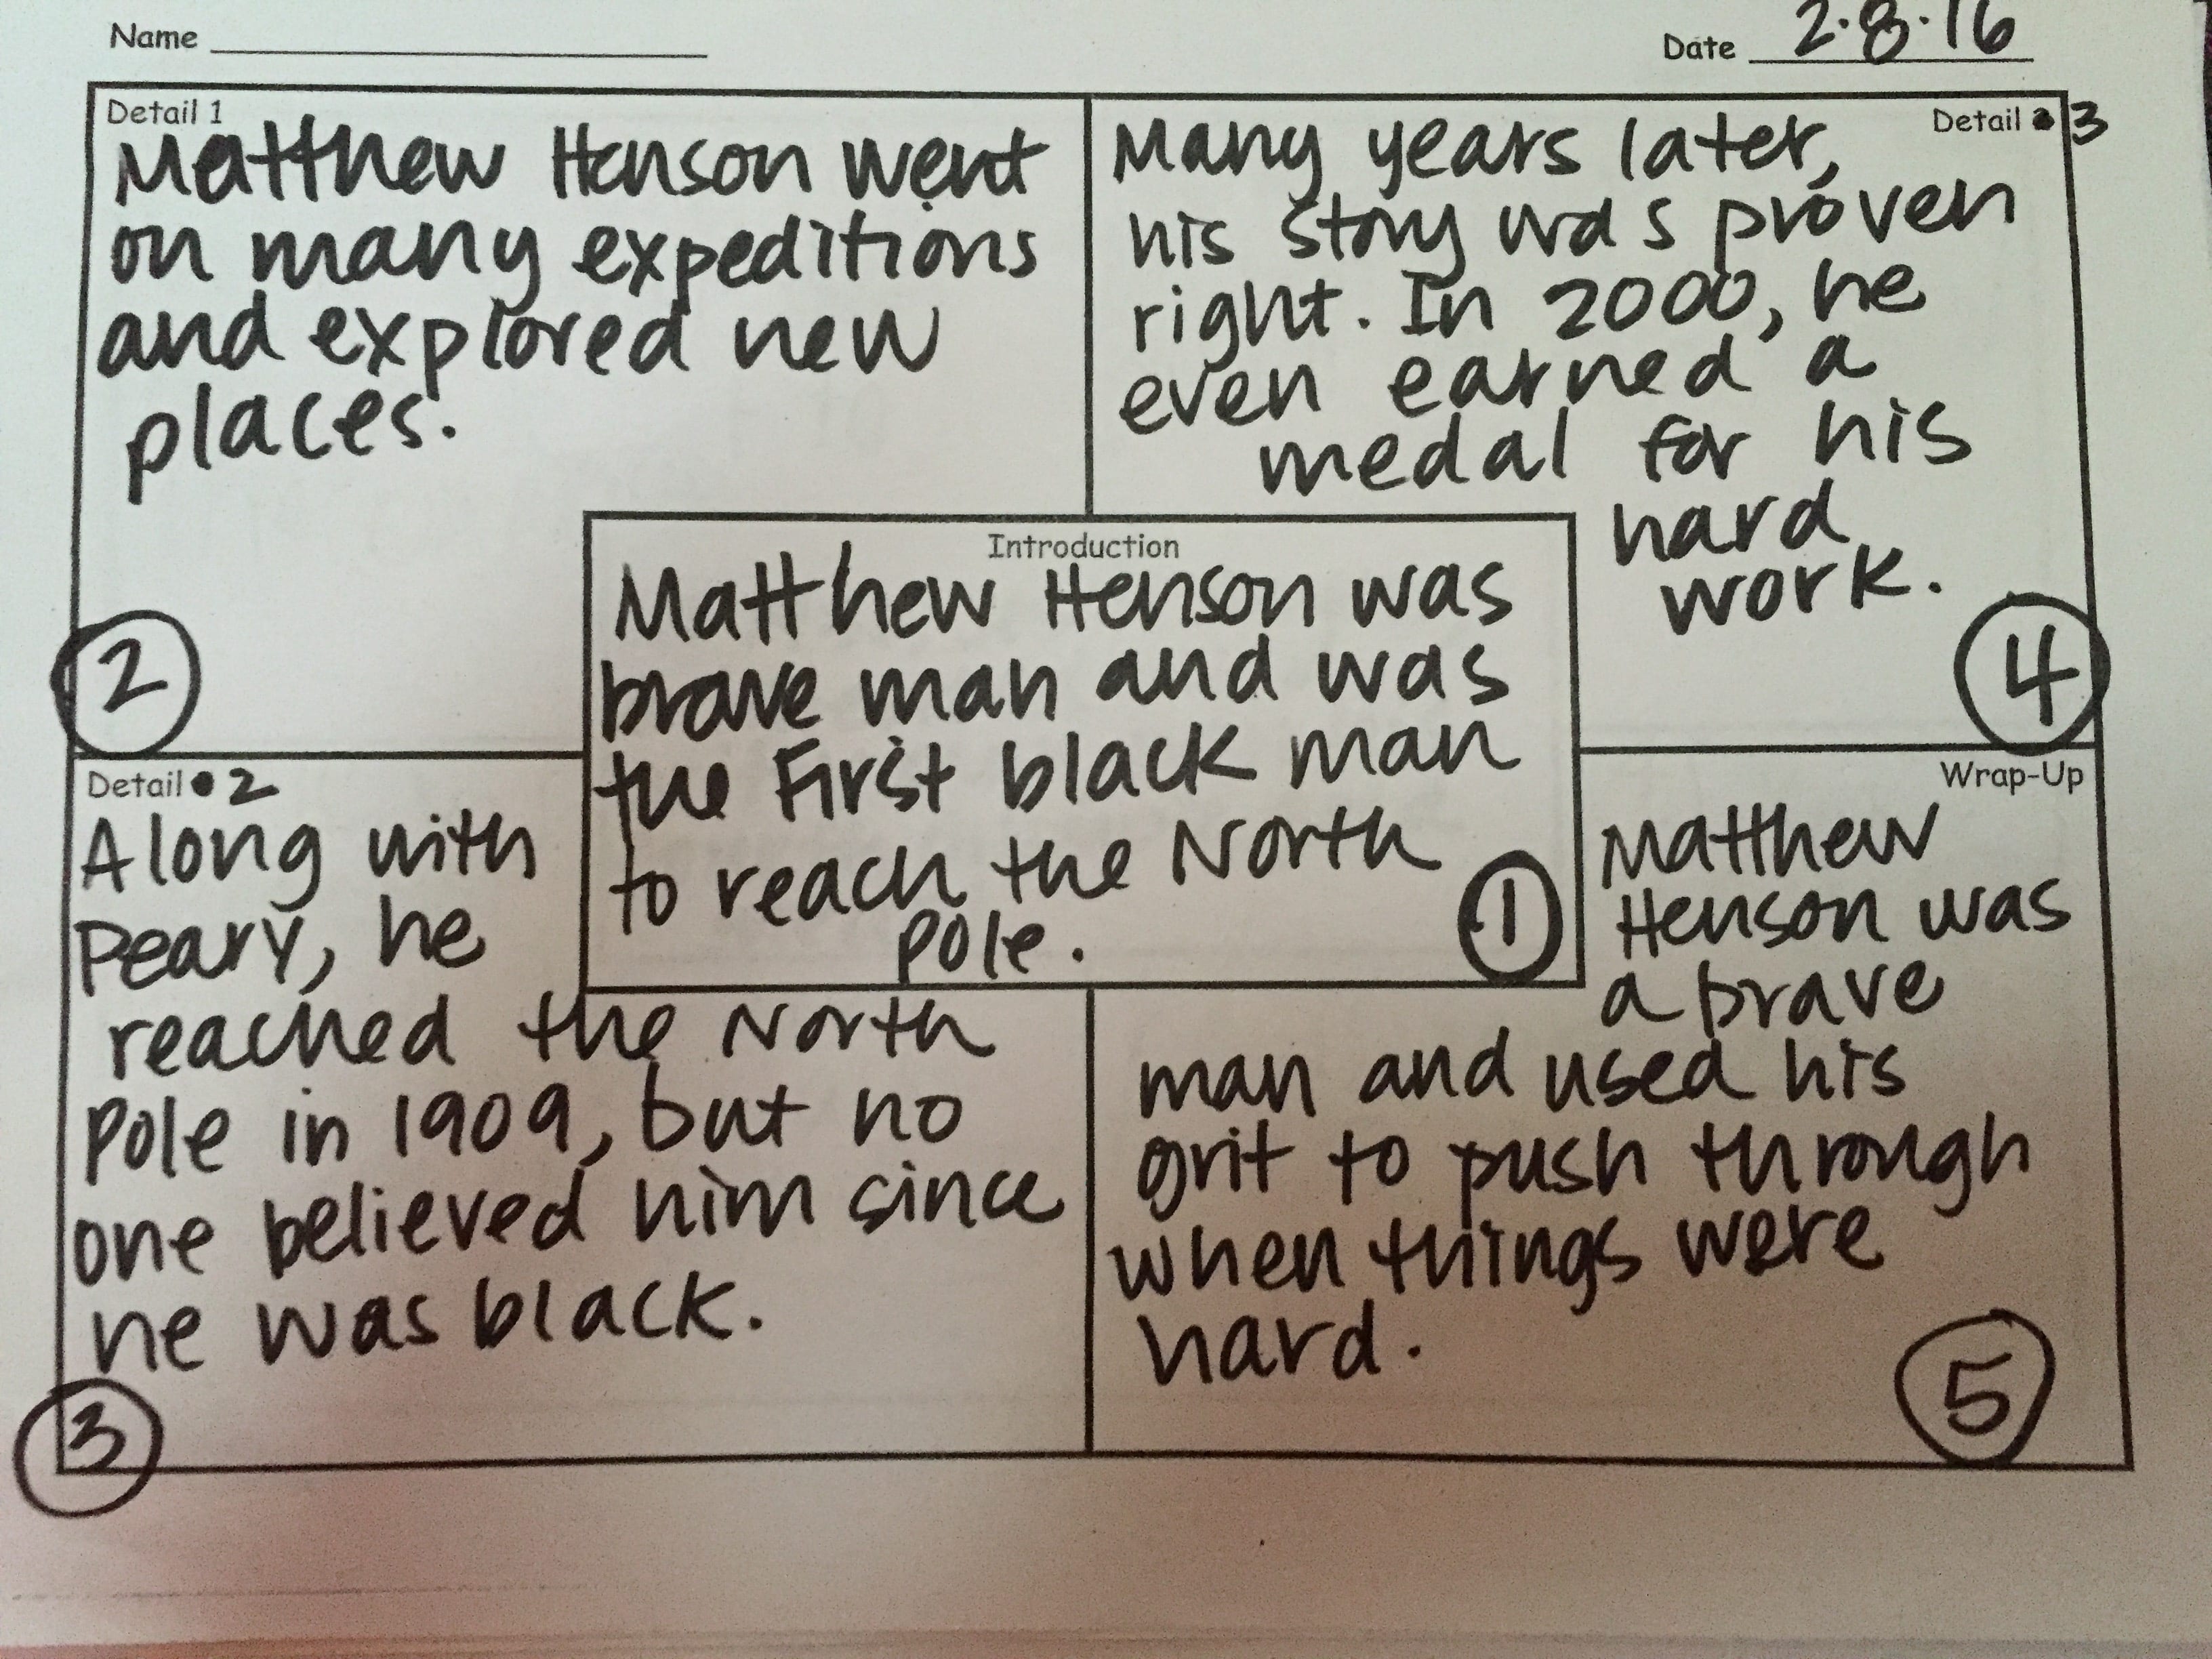 Name
Date 2.8.16
Detail 1
Matthew Henson went
on many expeditions
and explored new
places.
2
Detail 3
Many years later,
his story was proven
right. In 2000, he
even earned a
medal for his
hard
work.
4
Introduction
Matthew Henson was
brave man and was
the First black man
to reach the North
Pole.
1
Detail 2
Along with
Peary, he
reached the North
Pole in 1909, but no
one believed him since
he was black.
3
Wrap-Up
Matthew
Henson was
a brave
man and used his
grit to push through
when things were
hard.
5